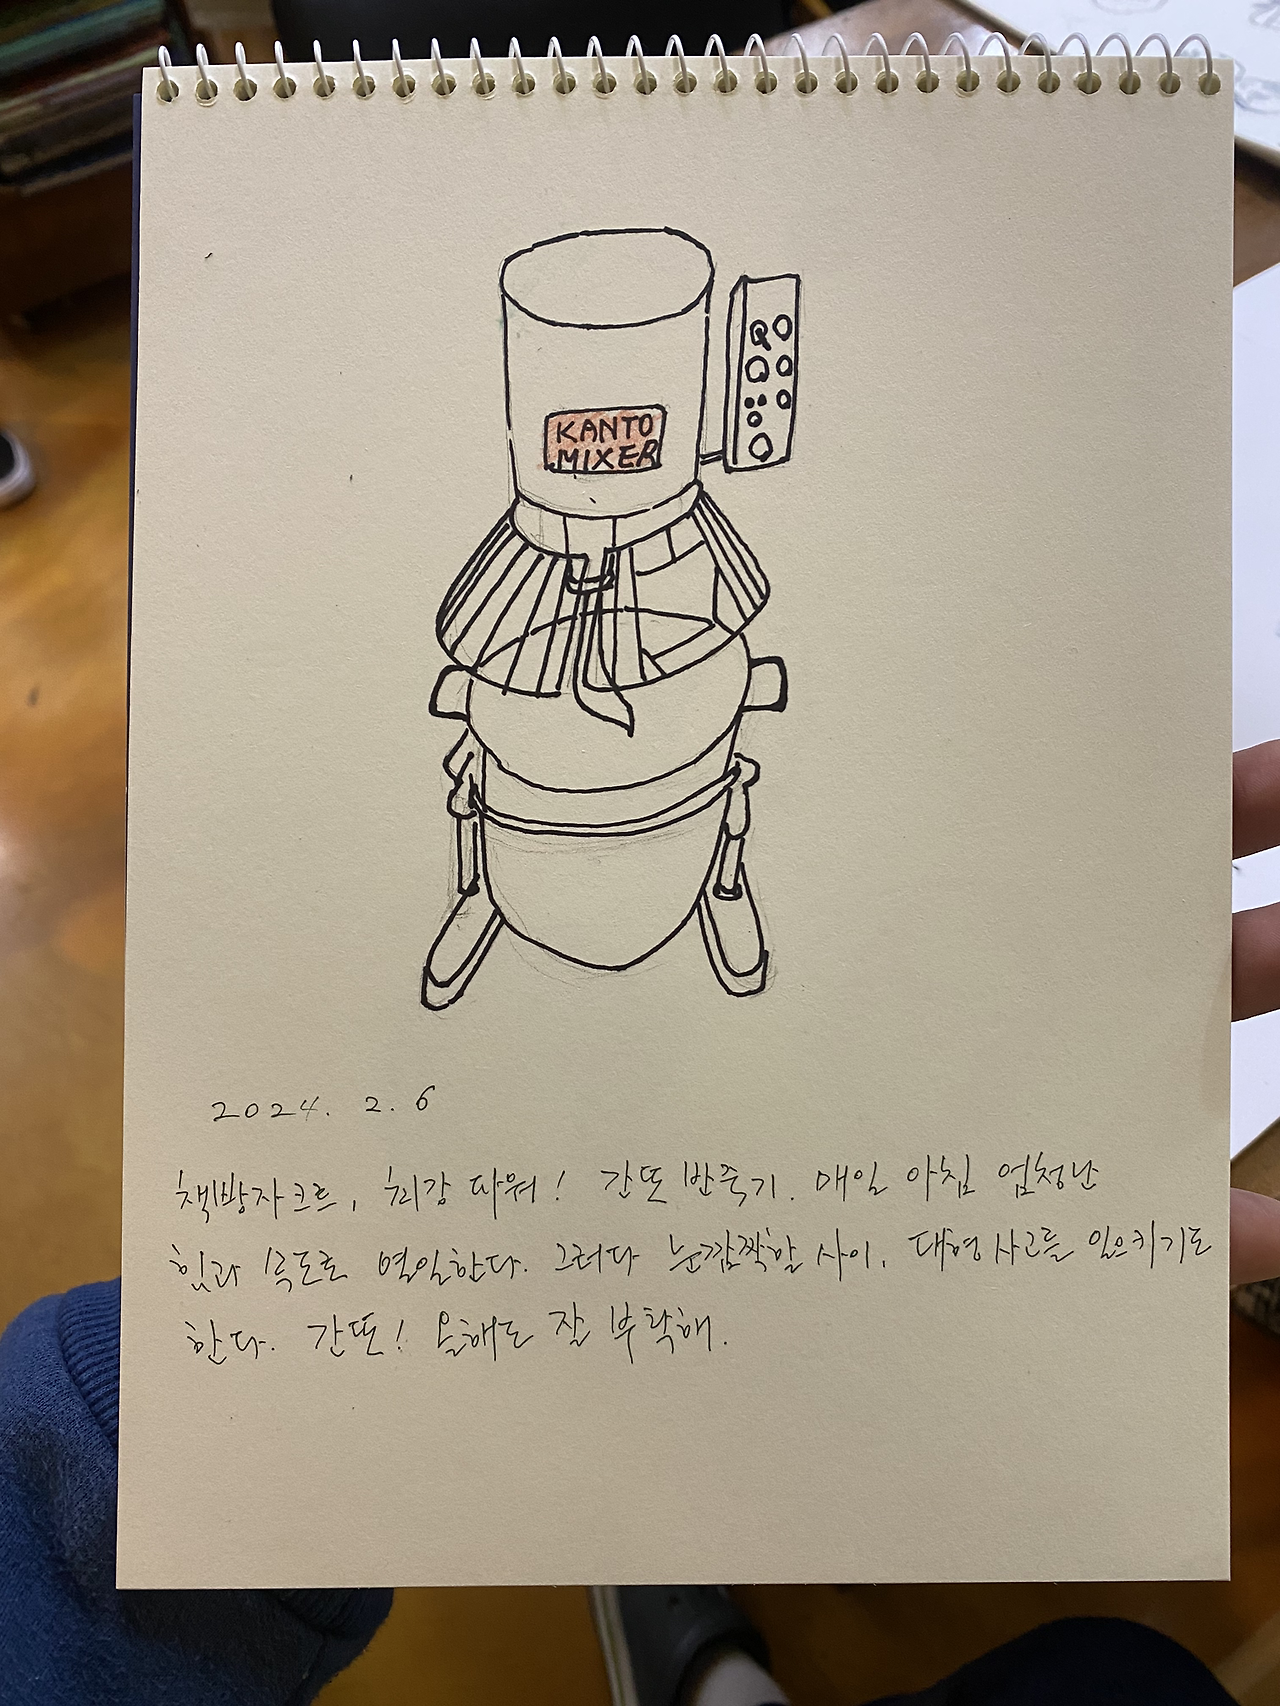 KANTO
MIXER
2024. 2. 6
책빵자크르, 최강 파워! 간또 반죽기. 매일 아침 엄청난
힘과 속도로 열일한다. 그러다 눈깜짝할 사이, 대형사고를 일으키기도
한다. 간또! 올해도 잘 부탁해.